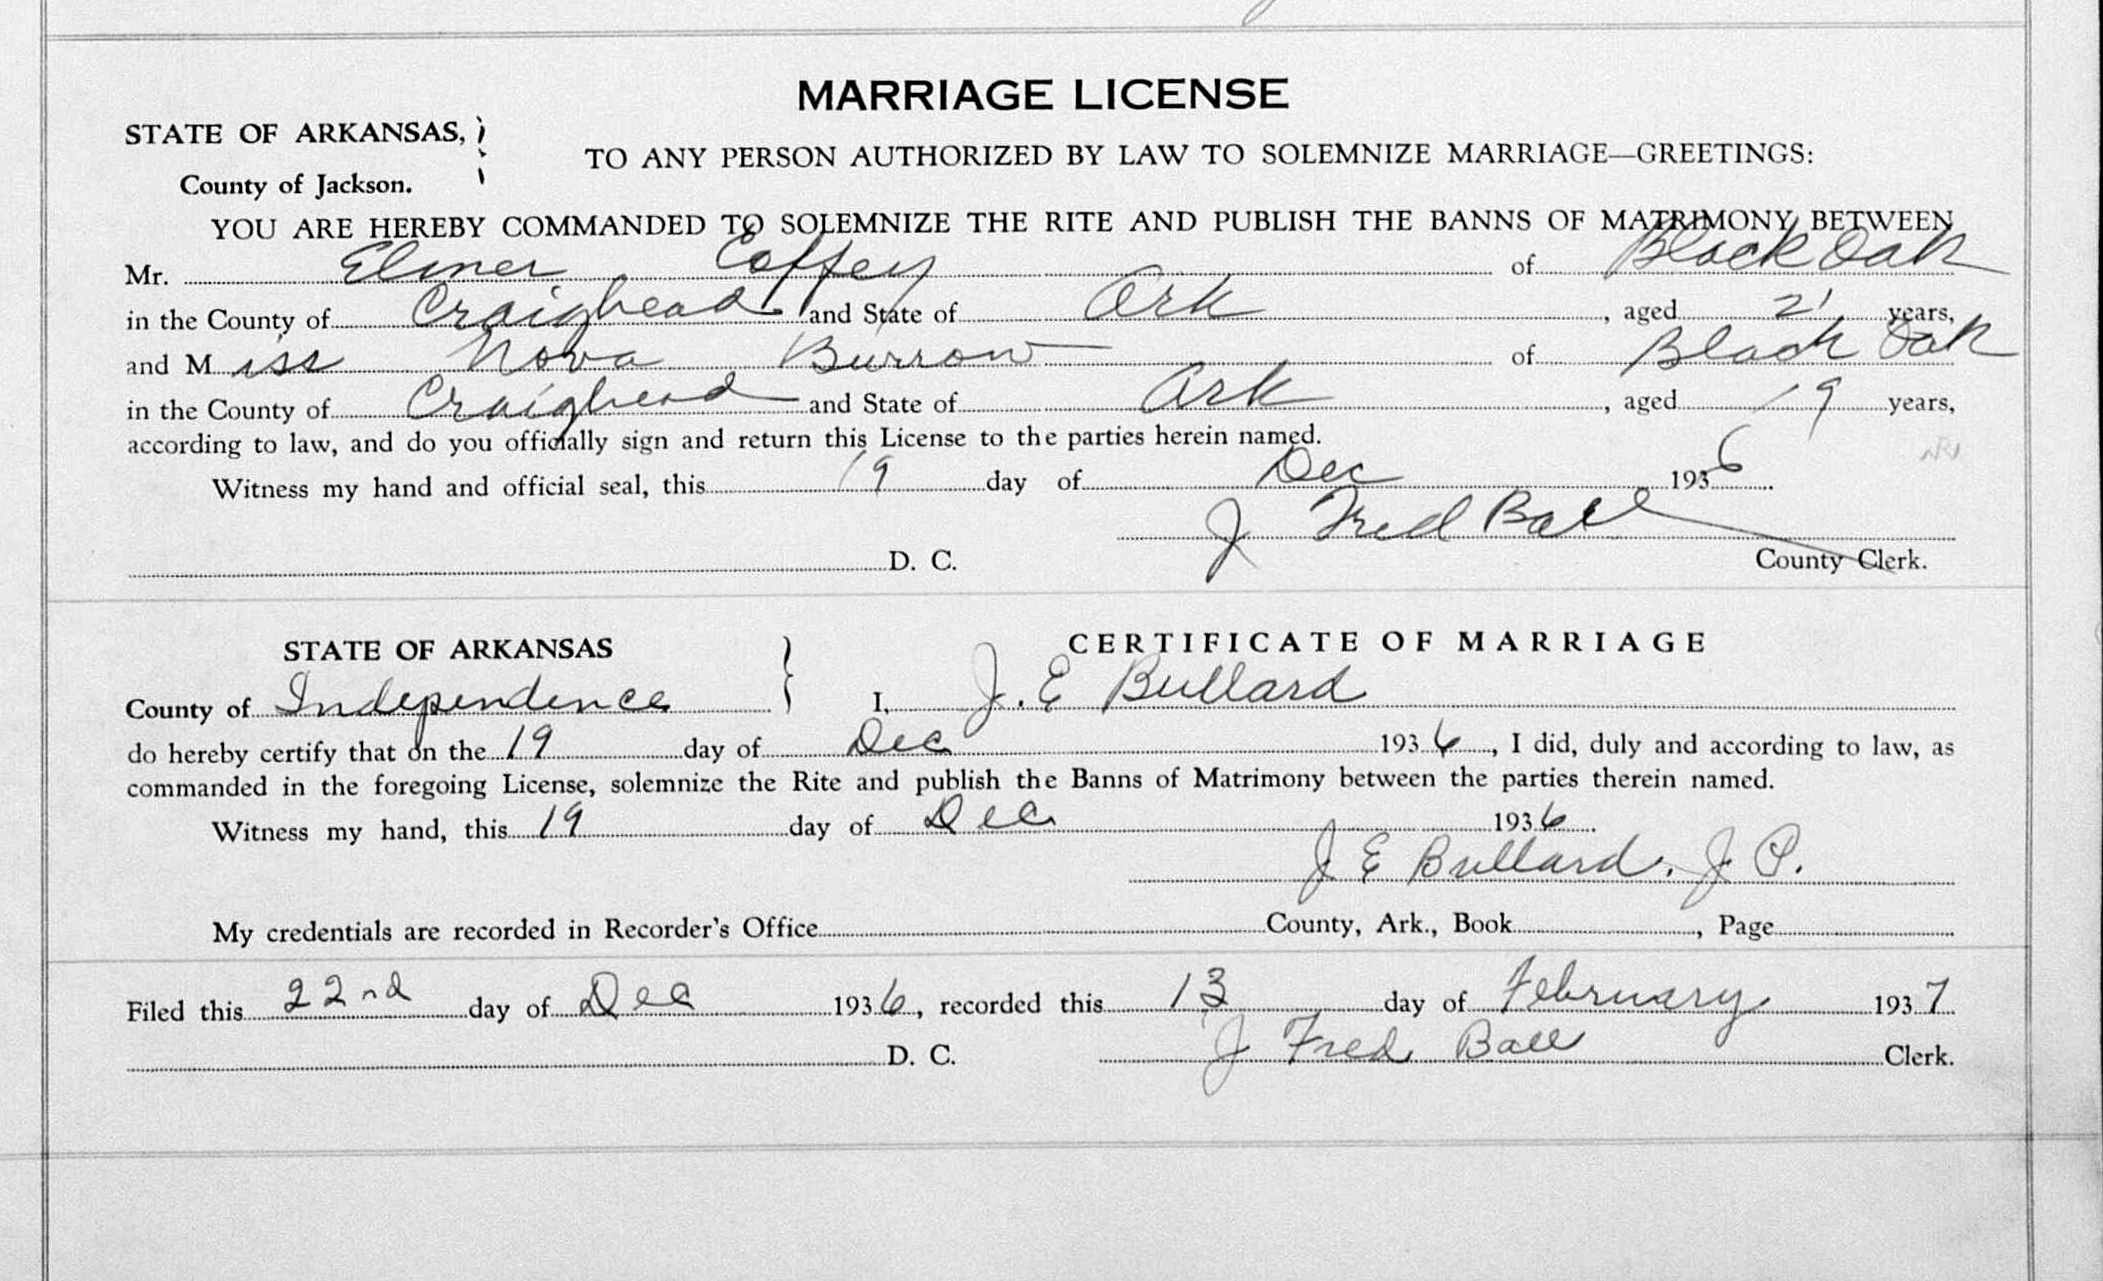 MARRIAGE LICENSE
STATE OF ARKANSAS,
County of Jackson.
TO ANY PERSON AUTHORIZED BY LAW TO SOLEMNIZE MARRIAGE—GREETINGS:
YOU ARE HEREBY COMMANDED TO SOLEMNIZE THE RITE AND PUBLISH THE BANNS OF MATRIMONY BETWEEN
Mr. Elmer Coffey of Black Oak
in the County of Craighead and State of Ark, aged 21 years,
and Miss Nova Burrow of Black Oak
in the County of Craighead and State of Ark, aged 19 years,
according to law, and do you officially sign and return this License to the parties herein named.
Witness my hand and official seal, this 19 day of Dec 1936.
J Fred Ball
D. C. County Clerk.
STATE OF ARKANSAS
CERTIFICATE OF MARRIAGE
County of Independence I, J. E Bullard
do hereby certify that on the 19 day of Dec 1936, I did, duly and according to law, as
commanded in the foregoing License, solemnize the Rite and publish the Banns of Matrimony between the parties therein named.
Witness my hand, this 19 day of Dec 1936.
J E Bullard. J P.
My credentials are recorded in Recorder's Office County, Ark., Book , Page
Filed this 22nd day of Dec 1936, recorded this 13 day of February 1937
D. C. J Fred Ball Clerk.